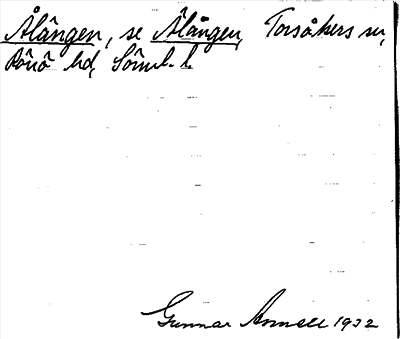 Ålången, se Älången, Torsåkers sn,
Rönö hd, Söml. l.
Gunnar Annell 1932